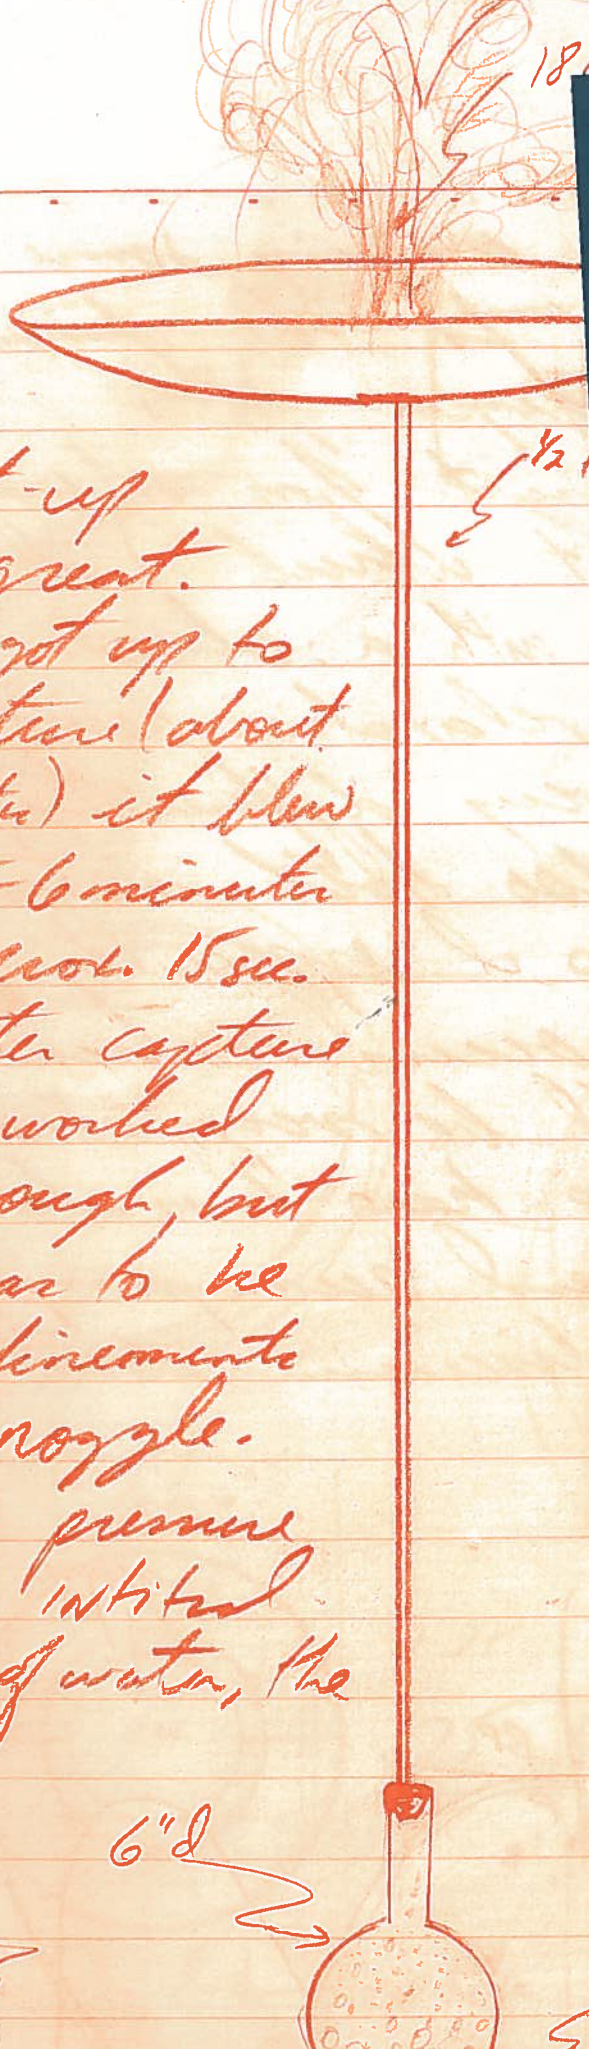 18
1/2
-up
great.
got up to
ture (about
) it blew
6 minutes
rox. 15 sec.
ter capture
worked
ough, but
ar to be
finements
nozzle.
pressure
intital
of water, the
6"d